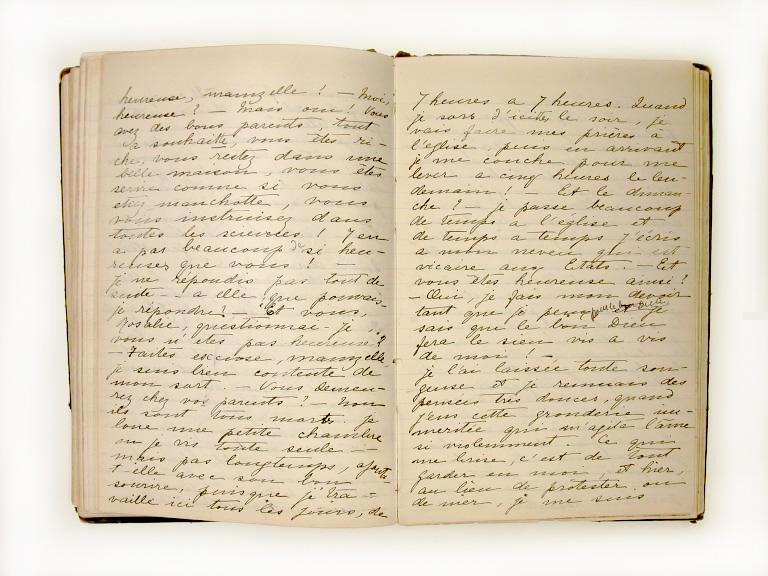 heureuse, mamzelle ! — Moi,
heureuse ? — Mais oui ! Vous
avez des bons parents, tout
à souhaitte, vous êtes ri-
che, vous restez dans une
belle maison, vous êtes
servie comme si vous
étiez manchotte, vous
vous instruisez dans
toutes les sciences ! Y en
a pas beaucoup de si heu-
reuses que vous ! —
je ne répondis pas tout de
suite — à elle, que pouvais-
je répondre ? — Et vous,
Rosalie, questionnai-je,
vous n'êtes pas heureuse ?
— Faites escuse, mamzelle,
je suis ben contente de
mon sort. — Vous demeu-
rez chez vos parents ? — Non
ils sont tous morts. je
loue une petite chambre
où je vis toute seule —
mais pas longtemps, ajouta
t'elle avec son bon
sourire, puisque je tra-
vaille ici tous les jours, de
7 heures à 7 heures. Quand
je sors d'icite le soir, je
vais faire mes prières à
l'église, puis en arrivant
je me couche pour me
lever à cinq heures le len-
demain ! — Et le diman-
che ? — je passe beaucoup
de temps à l'église et
de temps à temps j'écris
à mon neveu qui est
vicaire aux Etats. — Et
vous êtes heureuse ainsi ?
— Oui, je fais mon devoir
tant que je peux pour le bon Dieu et je
sais que le bon Dieu
fera le sien vis à vis
de moi ! —
je l'ai laissée toute son-
geuse et je remuais des
pensées très douces, quand
j'eus cette gronderie im-
méritée qui m'agita l'âme
si violemment. Ce qui
me brise, c'est de tout
garder en moi, et hier,
au lieu de protester ou
de nier, je me suis